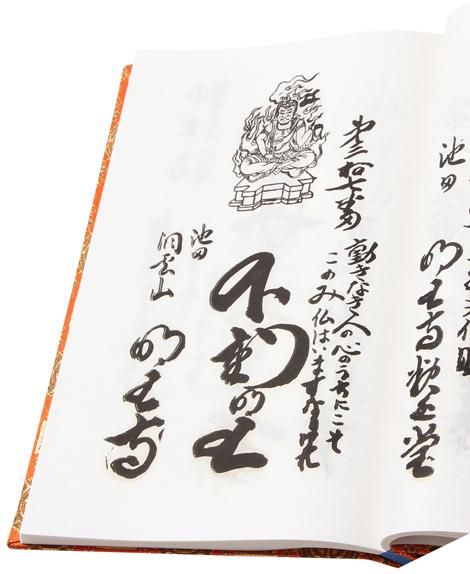 池田
明王寺釈迦堂
第三拾七番
動きなき人の心のうちにこそ
このみ仏はいますなりけれ
池田
不動明王
洞雲山
明王寺